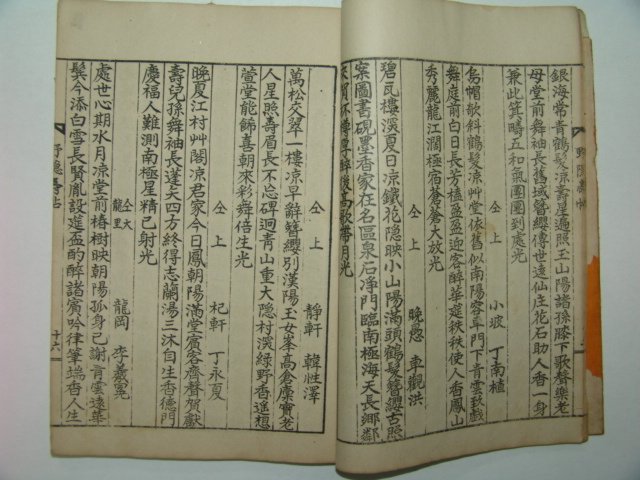 銀海常青鶴髮凉壽星遍照玉山陽諸孫膝下歌聲樂老
母堂前舞袖長舊域簪纓傳世遠仙庄花石助人香一身
兼此箕疇五和氣團團到處光
仝上
小坡 丁南植
烏帽欹斜鶴髮凉艸堂依舊似南陽客年門下青雲
舞庭前白日長芳樽盈盈迎客醉華筵秩秩使人香鳳山
秀麗龍江濶極宿蒼蒼大放光
仝上
晩愚 車觀洪
碧瓦樓溪夏日凉鐵花隐映小山陽滿頭鶴髮簪纓古照
案圖書硯墨香家在名區泉石净門臨南極海天長鄉
醉後高歌帶月光
仝上
靜軒 韓性澤
萬松交翠一樓凉早辭簪纓別漢陽玉女峯高倉廩寶老
人星照壽眉長不忘碑迴青山重大隠村溪綠野香進想
萱堂能餙喜朝來彩舞倍生光
仝上
杞軒 丁永夏
晩夏江村艸閣凉君家今日鳳朝陽滿堂賓客齊聲賀獻
壽兒孫舞袖長蓬矢四方終得志蘭湯三沐自生香德門
慶福人難測南極星精已射光
仝上
龍岡 李
處世心期水月凉堂前椿樹映朝陽孤身已謝青雲遠華
鬂今添白雪長賢胤設筵盃酌醉諸賓吟律筆端香人生